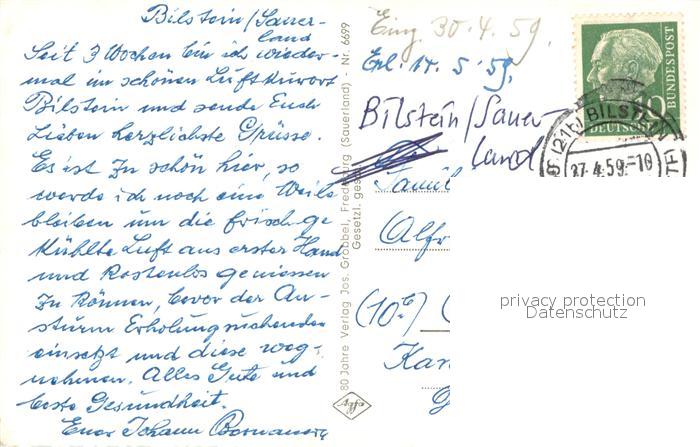 Bilstein/Sauer-
land
Seit 3 Wochen bin ich wieder-
mal im schönen Luftkurort
Bilstein und sende Euch
Lieben herzlichste Grüsse.
Es ist zu schön hier, so
werde ich noch eine Weile
bleiben um die frisch ge
kühlte Luft aus erster Hand
und kostenlos geniessen
zu können, bevor der An-
sturm Erholungsuchender
einsetzt und diese weg-
nehmen. Alles Gute und
beste Gesundheit.
Euer Johann
80 Jahre Verlag Jos. Grobbel, Fredeburg (Sauerland) - Nr. 6699
Gesetzl. ges
Agfa
Eing 30.4.59.
Erl. 14.5.59.
Bilstein/Sauer-
land
Famil
Alfr
(10b)
Kar
DEUTSCHE
BUNDESPOST
10
(21b) BILSTEIN
27.4.59.-10
privacy protection
Datenschutz